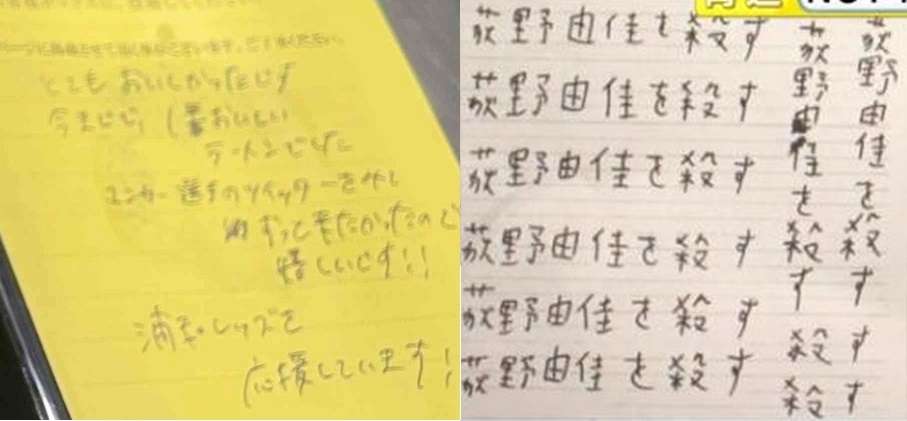 とてもおいしかったです
今までで1番おいしい
ラーメンでした
ユンカー選手のツイッターを見て
ずっと来たかったので
嬉しいです!!
浦和レッズを
応援しています!
荻野由佳を殺す
荻野由佳を殺す
荻野由佳を殺す
荻野由佳を殺す
荻野由佳を殺す
荻野由佳を殺す
荻野由佳を殺す
荻野由佳を殺す
殺す
殺す